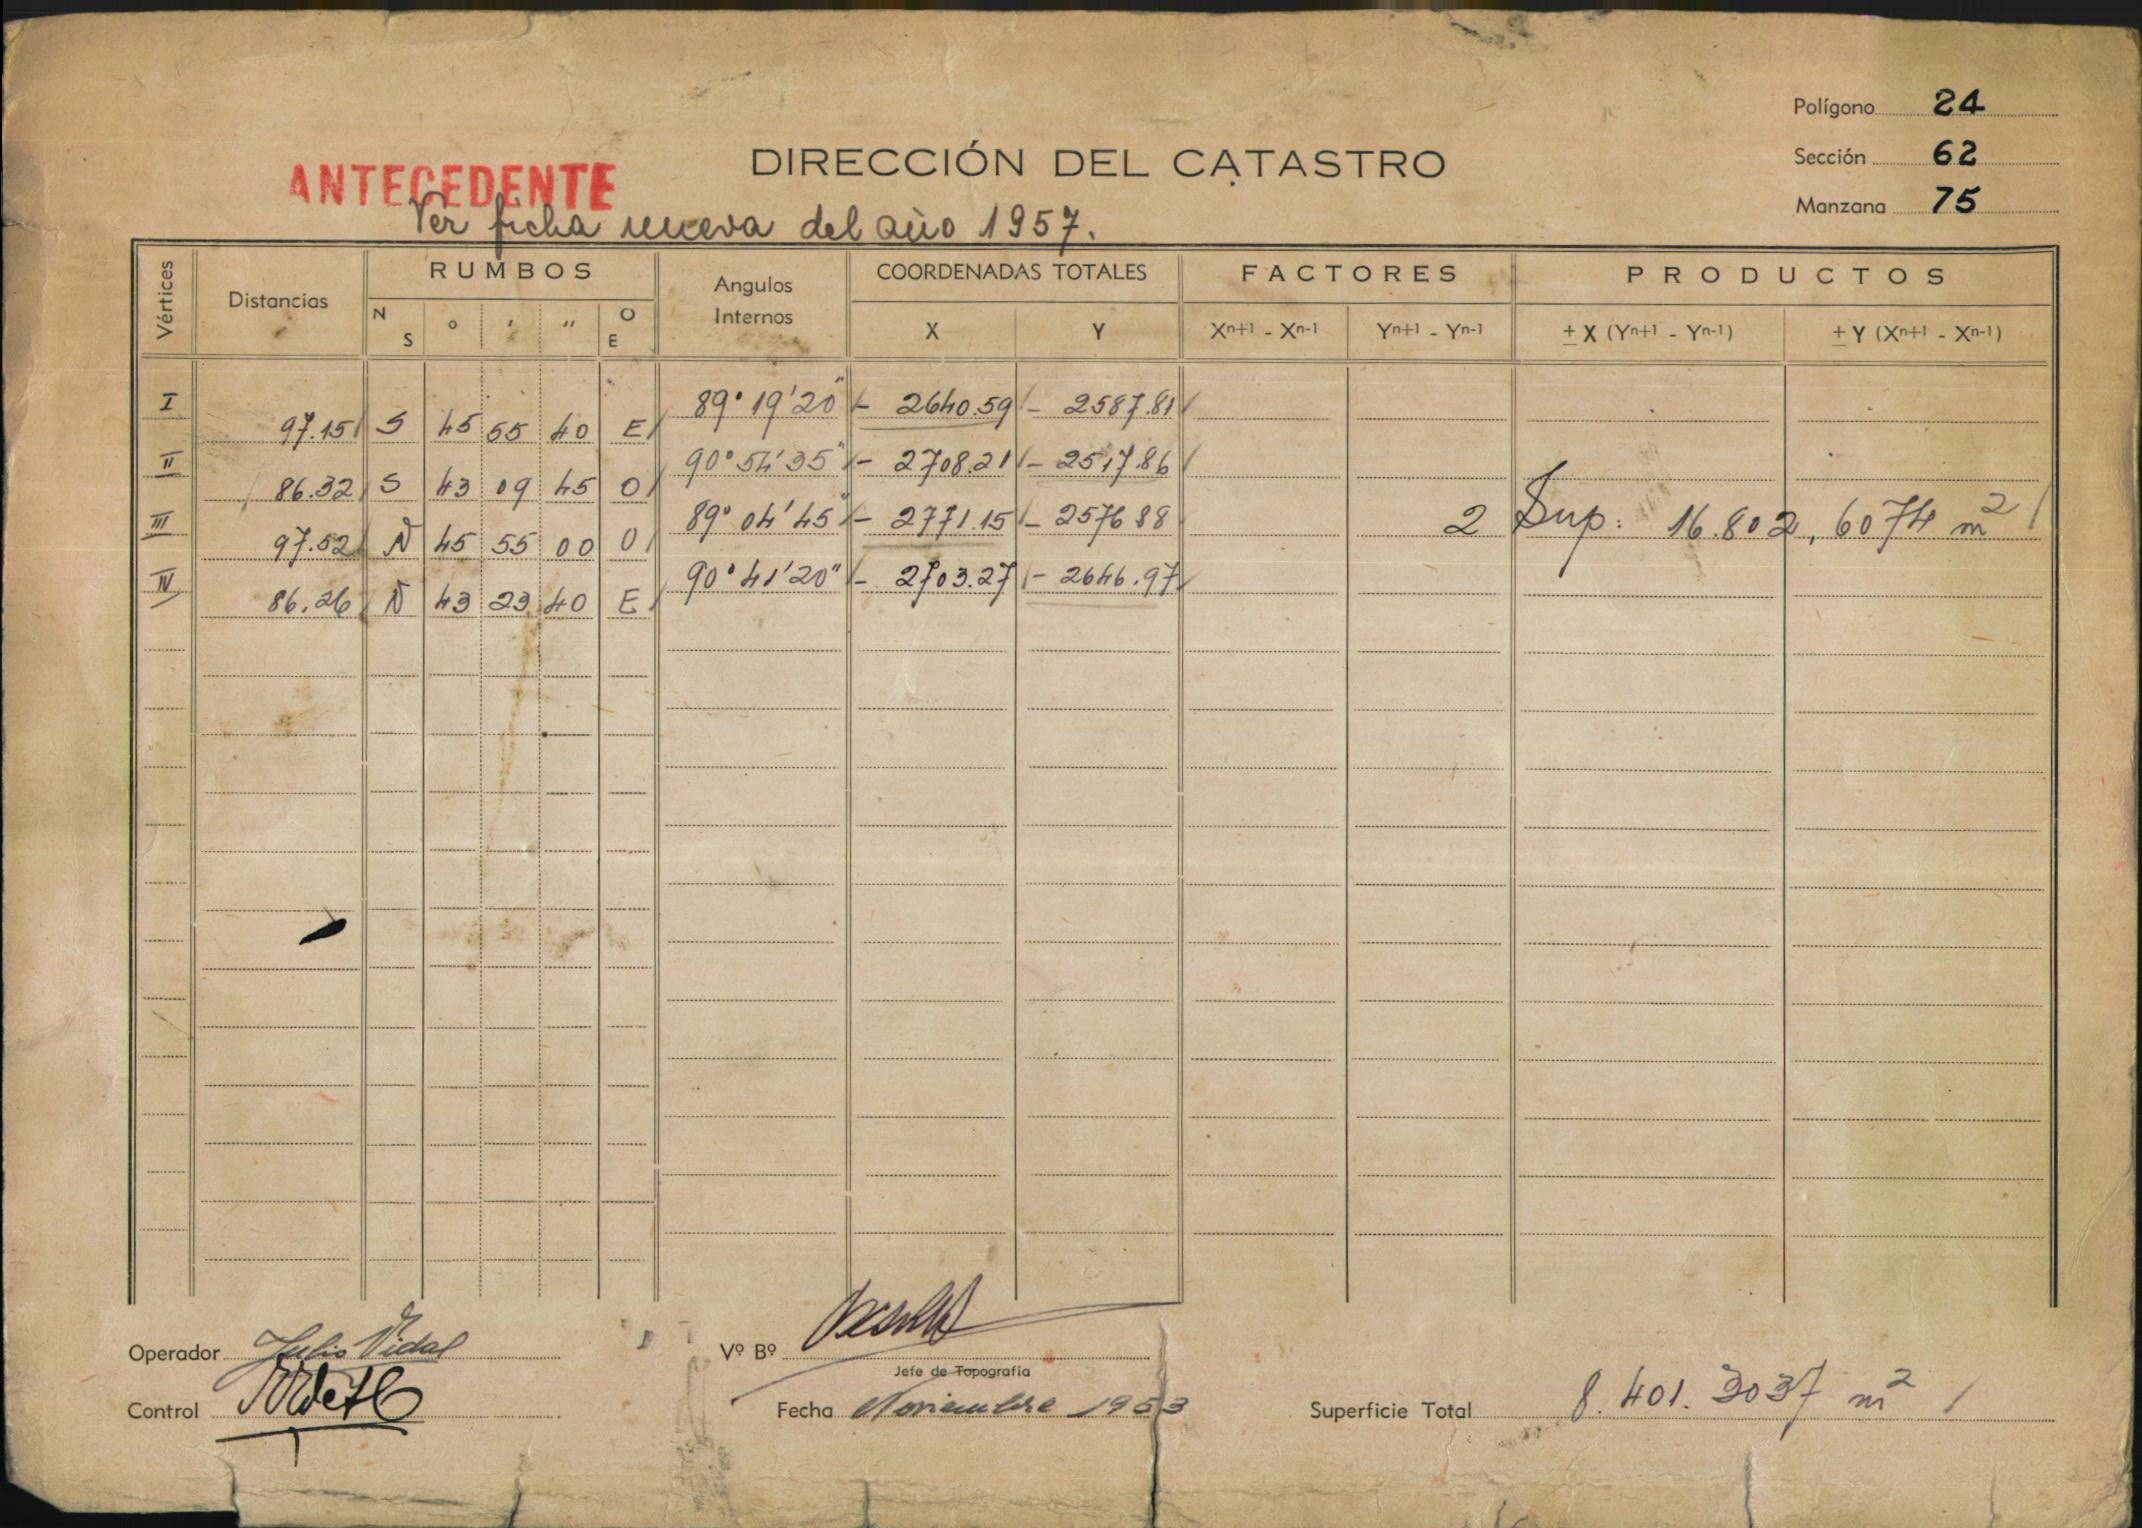 Polígono 24
DIRECCIÓN DEL CATASTRO
Sección 62
ANTECEDENTE
Manzana 75
Ver ficha nueva del año 1957.
Vértices Distancias RUMBOS Angulos Internos COORDENADAS TOTALES FACTORES PRODUCTOS
N S ° ' " O E X Y Xn+1 - Xn-1 Yn+1 - Yn-1 ± X (Yn+1 - Yn-1) ± Y (Xn+1 - Xn-1)
I 89° 19' 20" - 2640.59 - 2587.81
97.15 S 45 55 40 E
II 90° 54' 35" - 2708.21 - 2517.86
86.32 S 43 09 45 O
III 89° 04' 45" - 2771.15 - 2576.88 2 Sup: 16.802,6074 m2
97.52 N 45 55 00 O
IV 90° 41' 20" - 2703.27 - 2646.97
86.26 N 43 23 40 E
Operador Julio Vidal Vº Bº
Jefe de Topografía
Control Fecha Noviembre 1953 Superficie Total 8.401.3037 m2